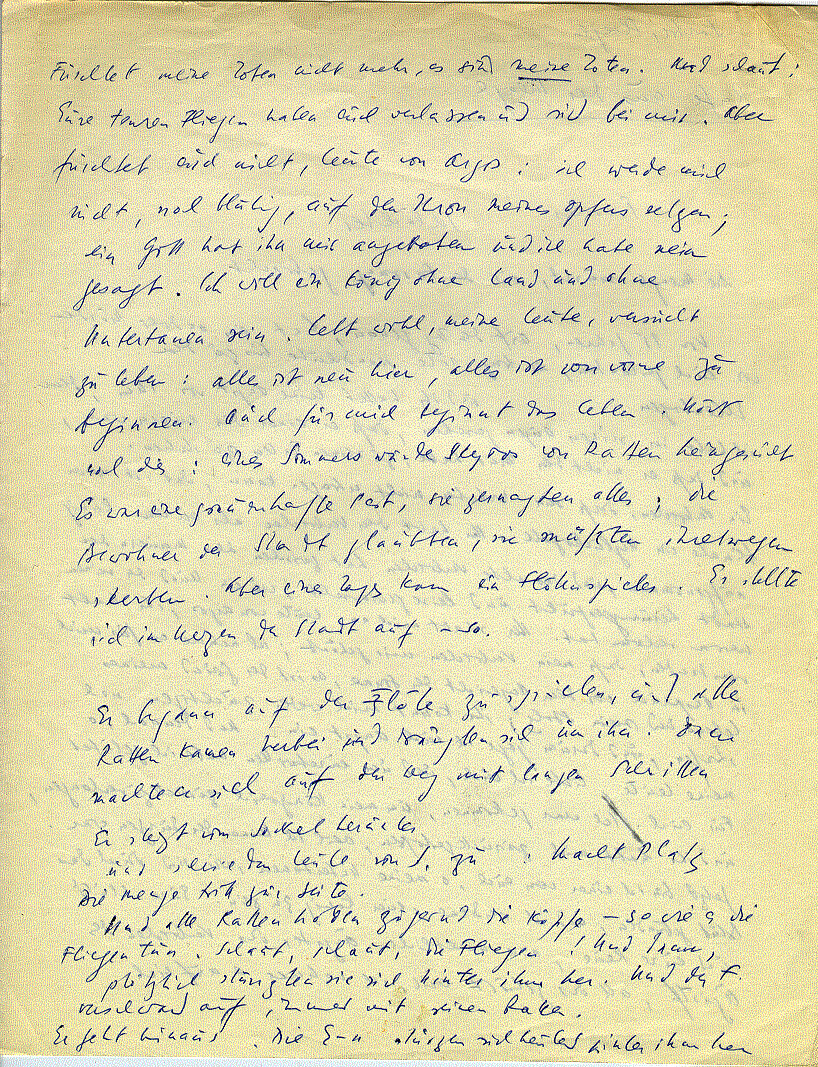 Fürchtet meine Toten nicht mehr, es sind meine Toten. Und schaut:
Eure teuren Fliegen haben euch verlassen und sind bei mir. Aber
fürchtet euch nicht, Leute von Argos: ich werde mich
nicht, noch blutig, auf den Thron meines Opfers setzen;
ein Gott hat ihn mir angeboten und ich habe nein
gesagt. Ich will ein König ohne Land und ohne
Untertanen sein. Lebt wohl, meine Leute, versucht
zu leben: alles ist neu hier, alles ist von vorne zu
beginnen. Auch für mich beginnt das Leben. Hört
noch dies: eines Sommers wurde Skyros von Ratten heimgesucht
Es war eine grauenhafte Pest, sie zernagten alles; die
Bewohner der Stadt glaubten, sie müßten ihretwegen
sterben. Aber eines Tages kam ein Flötenspieler Er stellte
sich im Herzen der Stadt auf – so.
Er begann auf der Flöte zu spielen, und alle
Ratten kamen herbei und drängten sich um ihn. Dann
machte er sich auf den Weg mit langen Schritten
Er steigt vom Sockel herunter
und den Leuten von S. zu: Macht Platz
Die Menge tritt zur Seite.
Und alle Ratten hoben zögernd die Köpfe – so wie es die
Fliegen tun. Schaut, schaut, die Fliegen! Und dann,
plötzlich stürzten sie sich hinter ihm her. Und der F.
verschwand auf immer mit seinen Ratten.
Er geht hinaus. Die E-n stürzen sich heulend hinter ihm her